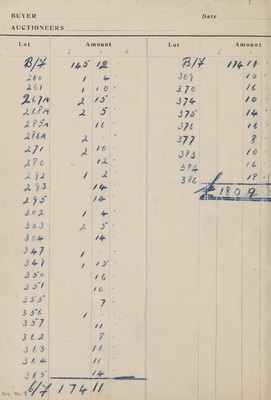 BUYER
Date
AUCTIONEERS
Lot Amount
£ s d
B/f 145 12 -
260 1 4 -
261 1 10 -
267A 2 15 -
268A 2 5 -
285A 16 -
286A 2 -
271 2 10 -
280 12 -
292 1 2
293 14 -
295 14 -
302 1 4 -
303 2 5 -
304 14 -
347 1 -
348 1 15 -
350 16 -
351 10 -
355 7 -
356 1 -
357 11 -
362 8 -
363 11 -
364 11 -
365 14 -
c/f 174 11
Lot Amount
£ s
B/f 174 11
369 10
370 16
374 10
375 14
376 16
377 8
383 10
384 16
386 18
£ 180 9